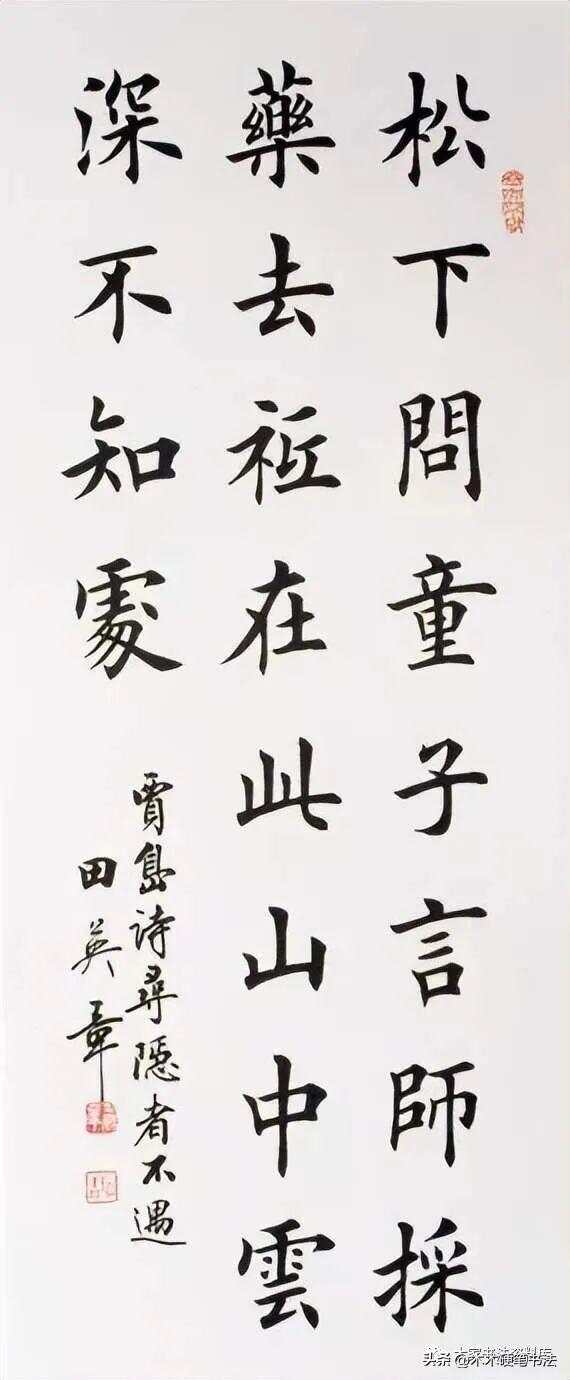 松下問童子言師採
藥去祗在此山中雲
深不知處
賈島詩尋隱者不遇
田英章
头条 @木木硬笔书法